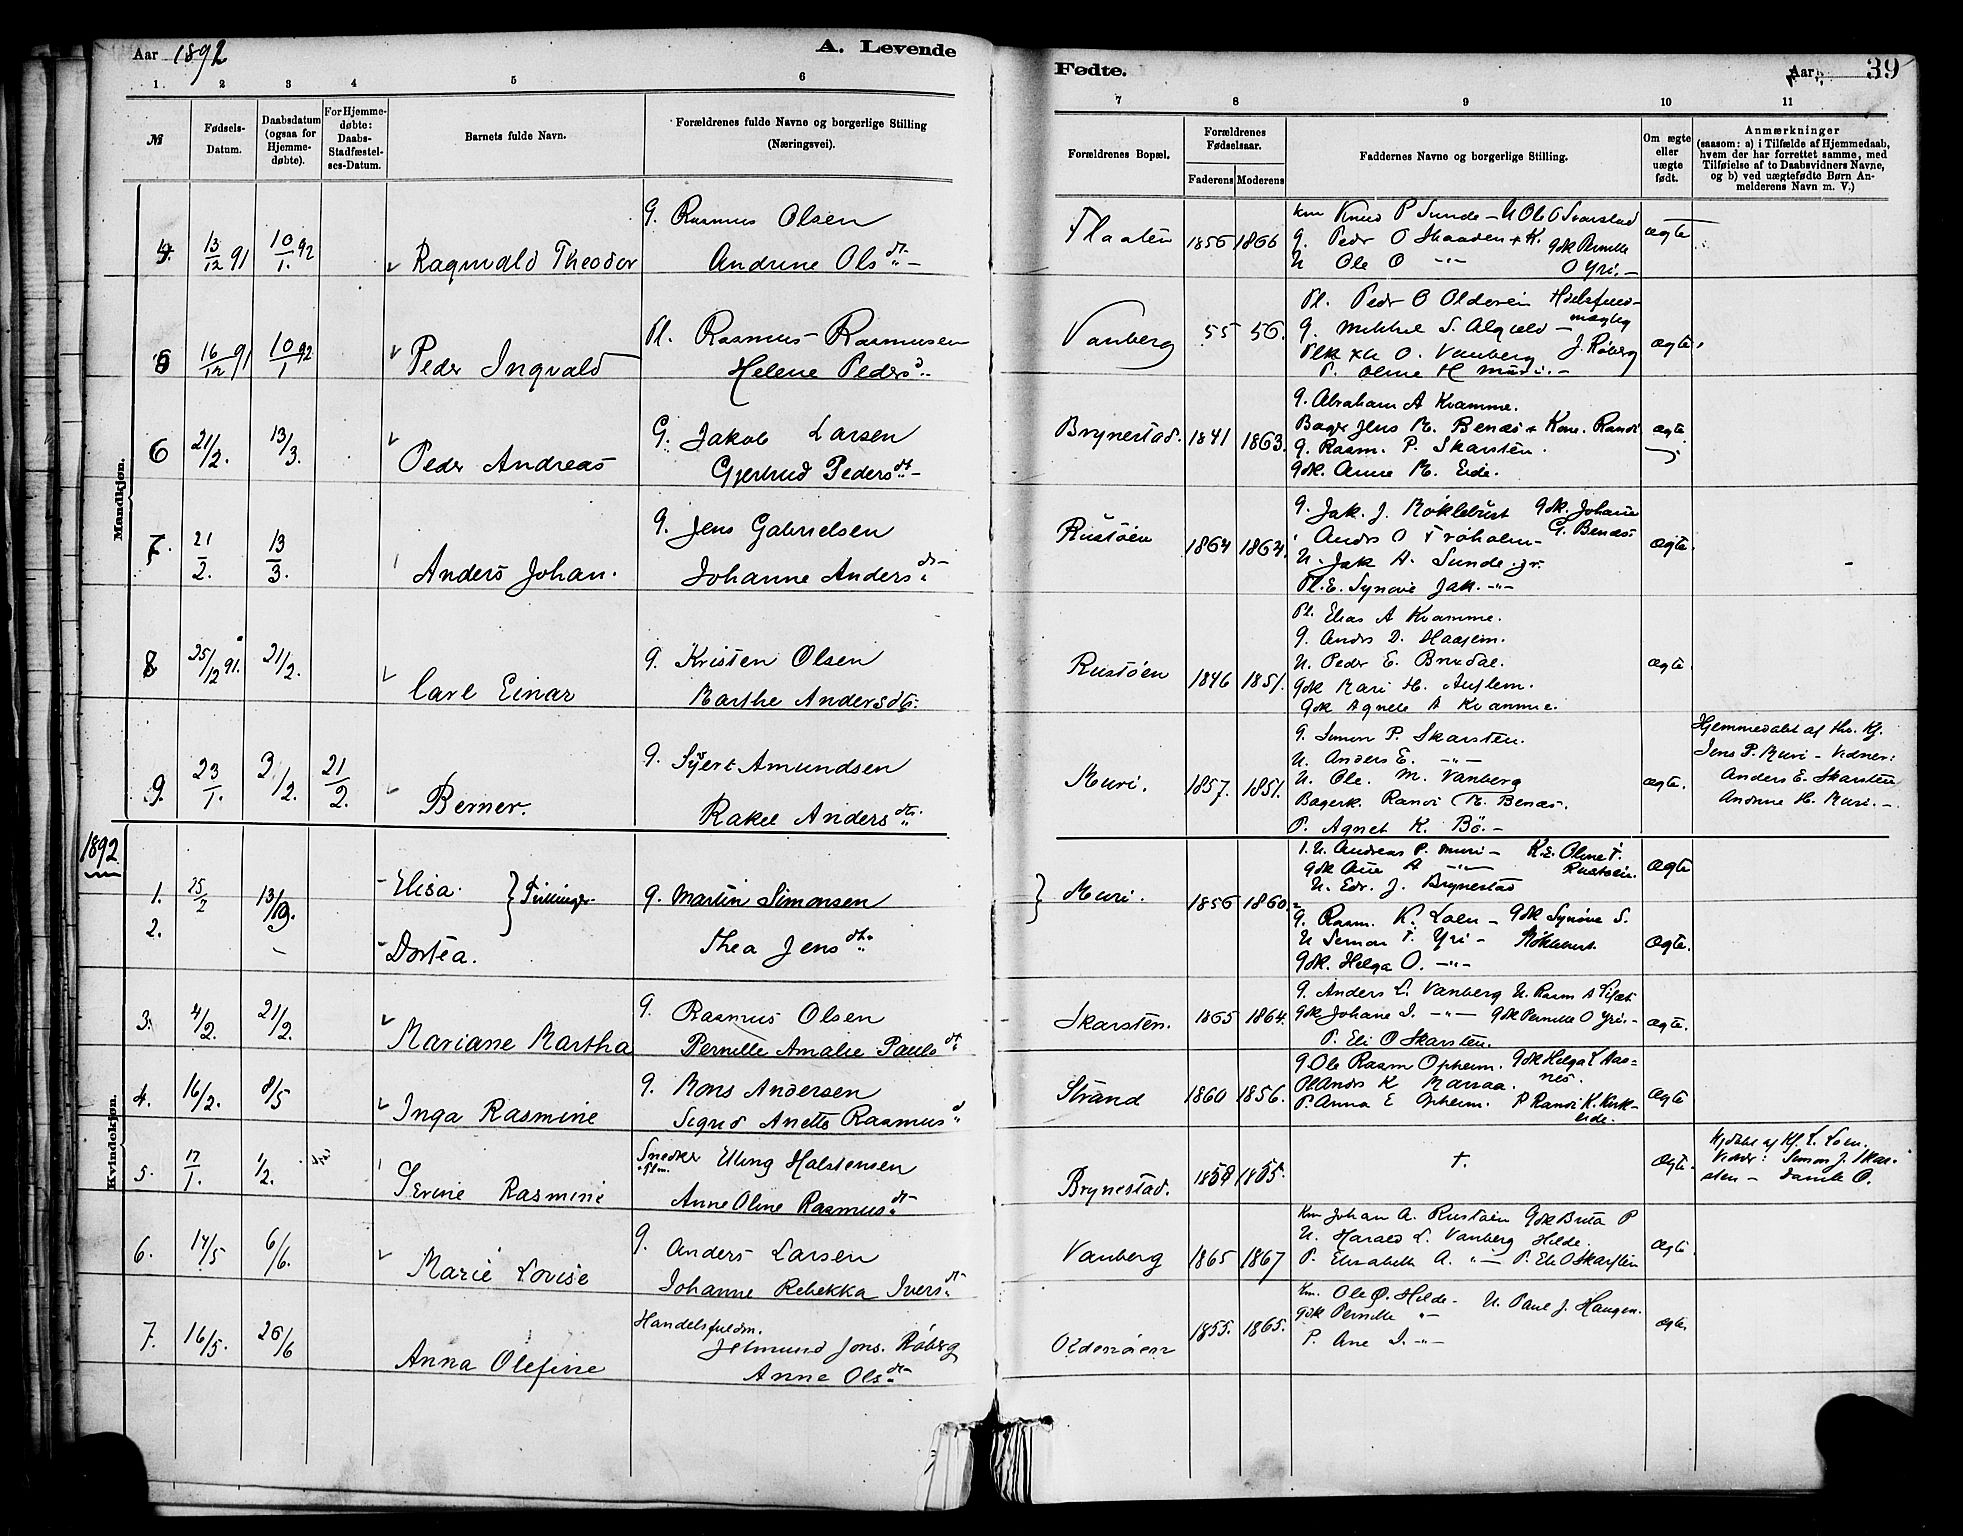 Aar 1892
A. Levende
Fødte.
Aar
39
1.
2
3
4
5
6
7
8
9
10
11
№
Fødsels-Datum.
Daabsdatum (ogsaa for Hjemme-døbte).
For Hjemme-døbte: Daabs-Stadfæstel-ses-Datum.
Barnets fulde Navn.
Forældrenes fulde Navne og borgerlige Stilling (Næringsvei).
Forældrenes Bopæl.
Forældrenes Fødselsaar.
Faderens
Moderens
Faddernes Navne og borgerlige Stilling.
Om ægte eller uægte født.
Anmærkninger (saasom: a) i Tilfælde af Hjemmedaab, hvem der har forrettet samme, med Tilføielse af to Daabsvidners Navne, og b) ved uægtefødte Børn An-melderens Navn m. V.)
Mandkjøn.
13/12 91
10/1. 92
Ragnvald Theodor
G. Rasmus Olsen
Andrine Olsdt.
Flaaten
1856 1866
km Knud P Sunde - U Ole O Svarstad
G. Peder O Skaaden + K. Gdk Pernille
U Ole O -"- O Yri.-
ægte
16/12 91
10/1 92
Peder Ingvald
Pl. Rasmus Rasmusen
Helene Pedersd.
Vanberg
55 56.
Pl. Peder O Olderein
G. Mikkel S.
O. Vanberg J. Røberg
P. Oline H Muri.-
ægte
6
21/2.
13/3.
Peder Andreas
G. Jakob Larsen
Gjertrud Pedersdt.
Brynestad.
1841 1863.
G. Abraham A Kvamme.
Bager Jens M. Benæs + Kone Randi
G. Rasm. P. Skarsten.
Gdk. Anne M. Eide.
ægte
7.
21/2.
13/3.
Anders Johan.
G. Jens Gabrielsen
Johanne Andersdt.
Rustøen
1864 1864.
G. Jak. J. Møklebust Gdk. Johanne
Andrs O Frøholm- G. Benæs
U. Jak A. Sunde. jr.
Pl. E. Synøve Jak. -"-
ægte.
8
25/12 91.
21/2.
Carl Einar
G. Kristen Olsen
Marthe Andersdt.
Rustøen
1846 1851.
Pl. Elias A Kvamme.
G. Andrs D. Haagem.
U. Peder E. Brudal.
Gdk Mari H. Auflem.
Gdk Agnete A Kvamme.
ægte.
9.
23/1.
3/2.
21/2.
Berner.
G. Sjert Amundsen
Rakel Andersdt.
Muri.
1857. 1851.
G. Simon P. Skarsten.
U. Anders E. -"-
U. Ole. M. Vanberg
Bagerk. Randi M. Benæs.
P. Agnet K. Bø.-
ægte.
Hjemmedøbt af Kj.
Jens P. Muri - Vidner:
Anders E. Skarsten
Andrine H. Muri.-
1892
Kvindekjøn.
1.
25/2
Elisa.
Tvillinger.
2.
Dortea.
G. Martin Simonsen
Thea Jensdt.
Muri.
1856 1860.
U. Andreas P. Muri - K.E. Oline T.
Gdk Ane A -"- Rustøen.
U. Edr. J. Brynestad
ægte
G. Rasm. K. Loen - Gdk Synøve S.
U Simon T. Yri - Møklebust
Gdk. Helga O. -"-
ægte.
3.
4/2.
21/2.
Mariane Martha
G. Rasmus Olsen
Pernille Amalie Paulsdt.
Skarsten.
1865 1864.
G. Anders L. Vanberg U. Rasm A
Gdk Johane I. -"- Gdk Pernille O Yri.-
P. Eli O Skarsten.
ægte.
4.
16/2.
8/5
Inga Rasmine
G. Mons Andersen
Sigrid Anette Rasmusd.
Strand
1860 1856.
G Ole Rasm Opheim. Gdk Helga L Aas-
nes.
Andrs K
P. Anna E Opheim. P Randi K. Kirk-
eide.
ægte
5.
17/1.
1/2.
Serine Rasmine
Snedker Elling Halstensen
Anne Oline Rasmusdt.
Brynestad.
1855.
†.
ægte.
Hjdøbt af Kj. L. Loen.
Vidner: Simon J. Skar-
sten -
6.
14/5
6/6.
Marie Lovise
G. Anders Larsen
Johanne Rebekka Iversdt.
Vanberg
1865 1867
Km Johan A. Rustøen Gdk Brita P
U. Harald L. Vanberg Hilde.
P. Elisabeth A. -"- P. Eli O Skarsten
ægte
7.
16/5.
26/6
Anna Olefine
Handelsfuldm.
Jetmund Jons. Røberg
Anne Olsdt.
Oldenøien
1855. 1865.
Km. Ole Ø. Hilde - U. Paul J. Haugen.
Gdk Pernille -"-
P. Ane I. -"-
ægte.